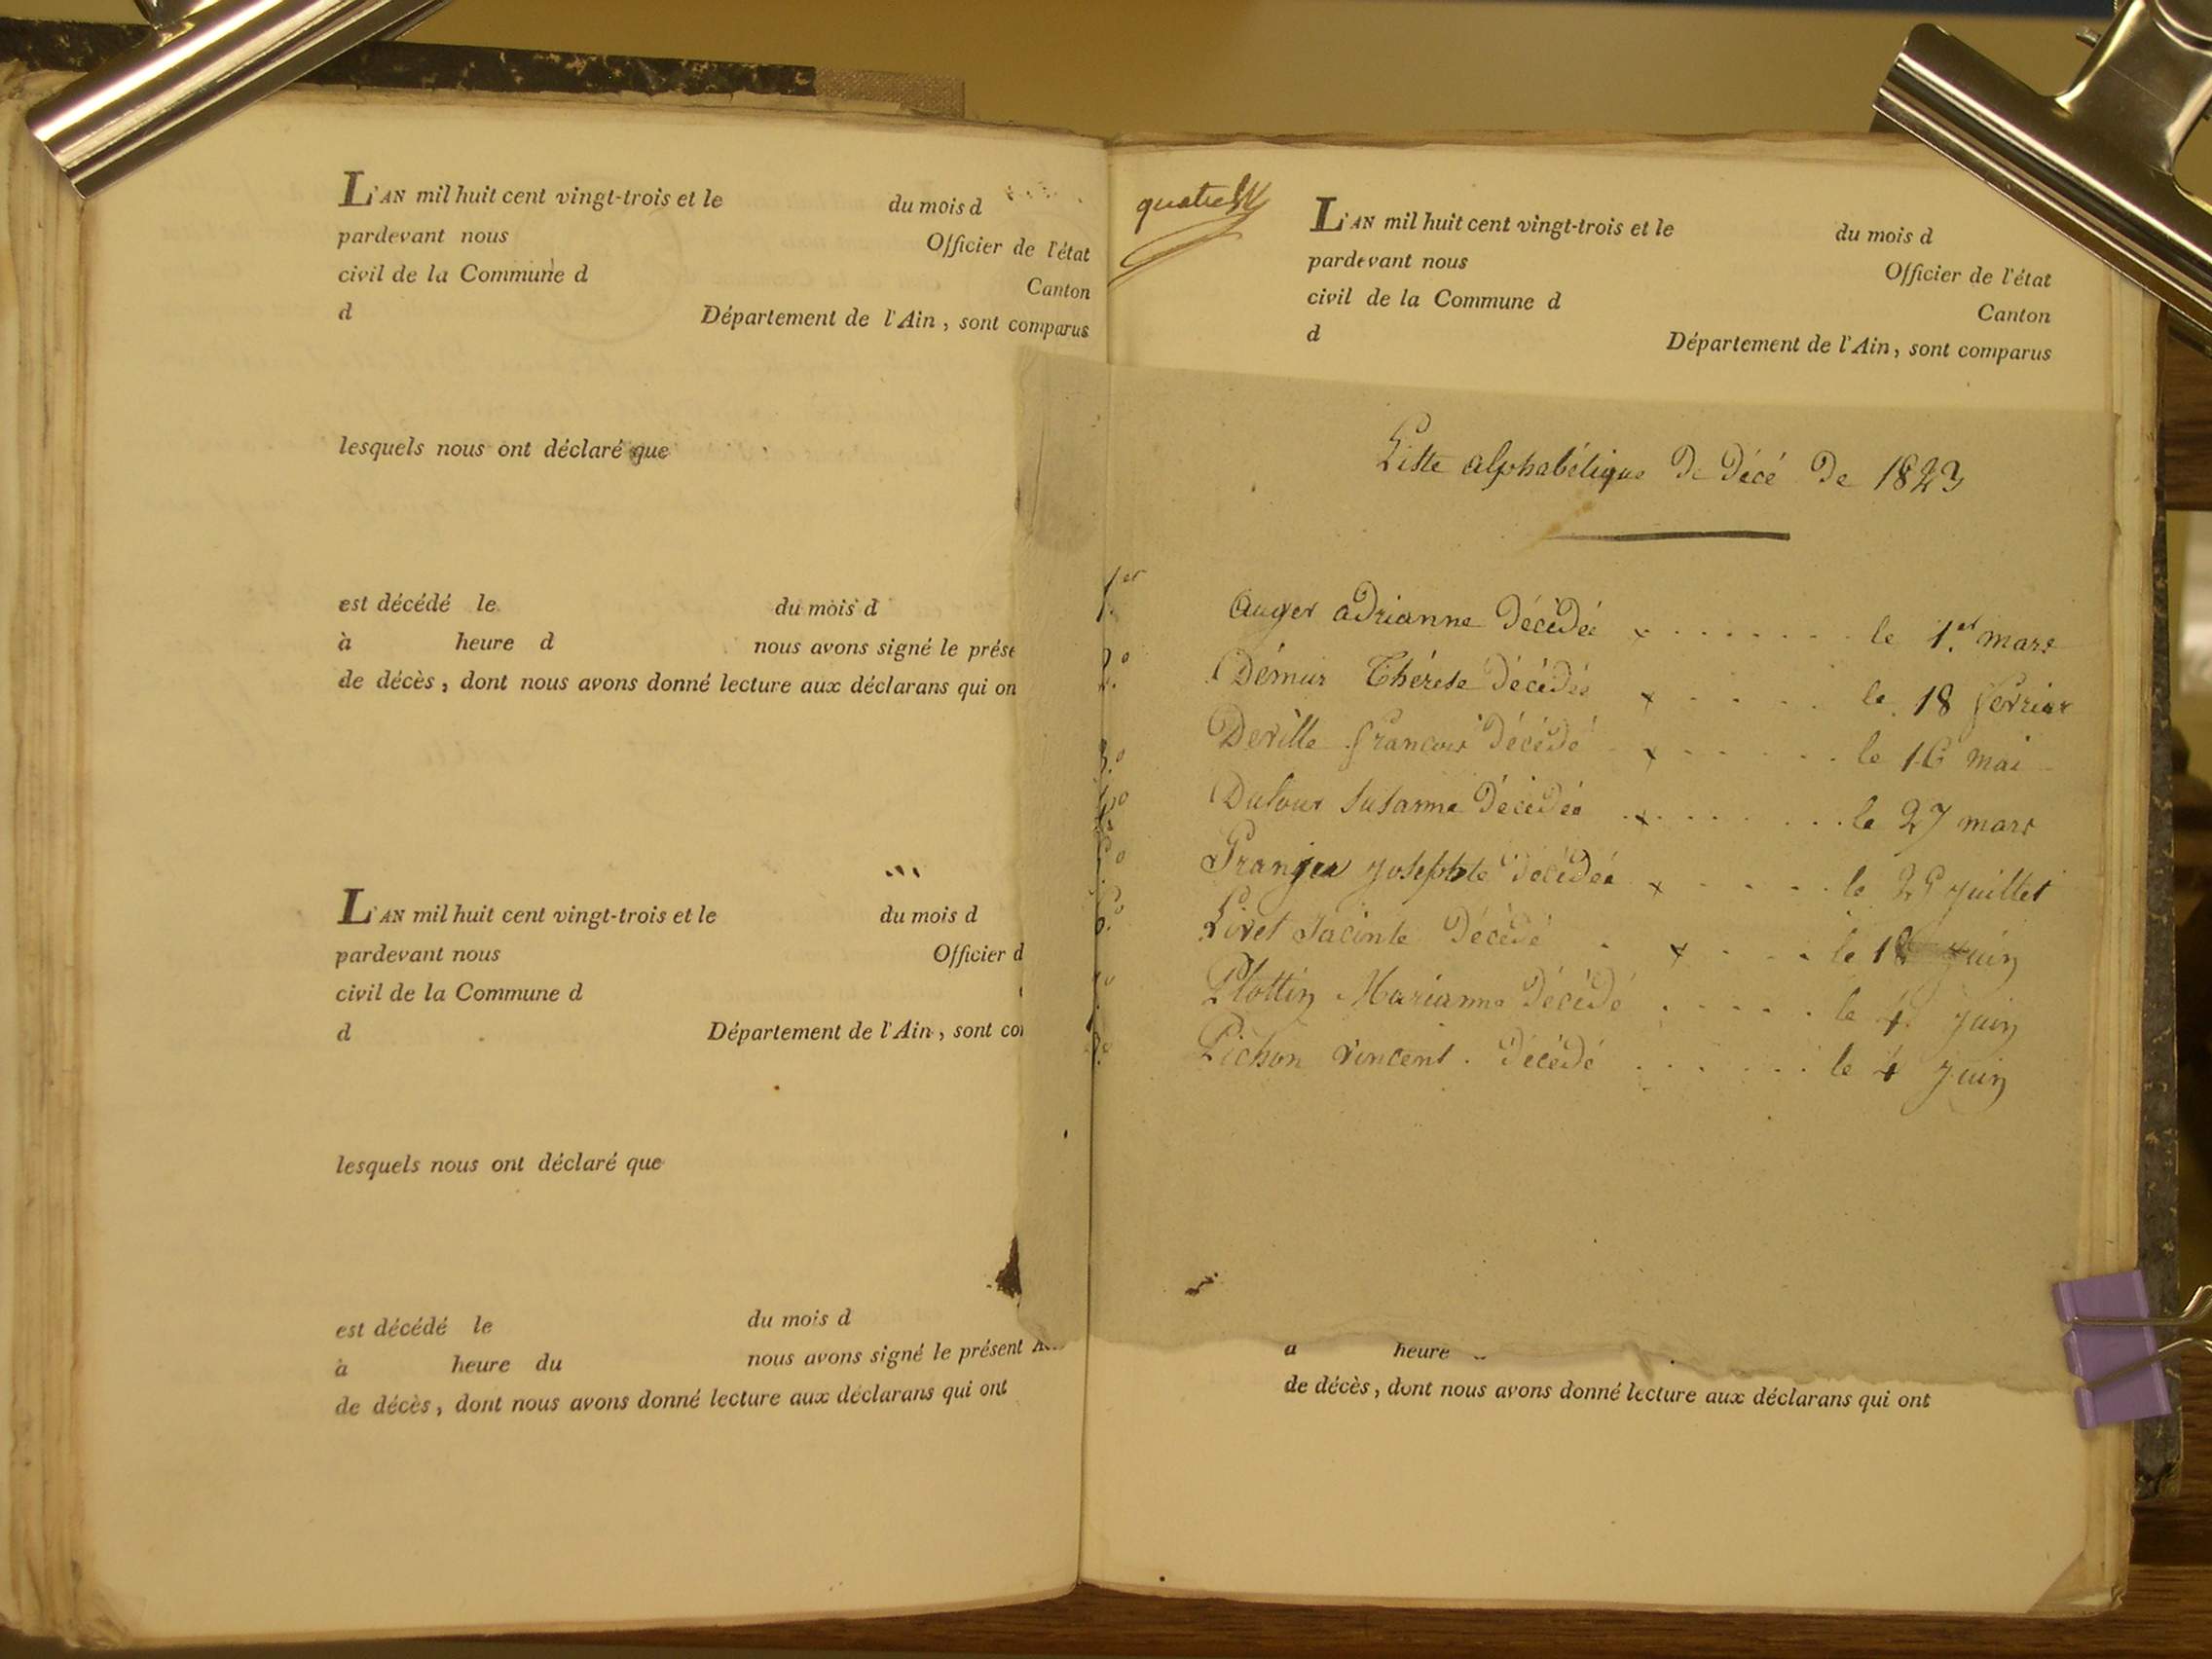 L'AN mil huit cent vingt-trois et le du mois d
pardevant nous Officier de l'état
civil de la Commune d Canton
d Département de l'Ain, sont comparus
lesquels nous ont déclaré que
est décédé le du mois d
à heure d nous avons signé le prése
de décès, dont nous avons donné lecture aux déclarans qui on
L'AN mil huit cent vingt-trois et le du mois d
pardevant nous Officier d
civil de la Commune d
d Département de l'Ain, sont co
lesquels nous ont déclaré que
est décédé le du mois d
à heure du nous avons signé le présent
de décès, dont nous avons donné lecture aux déclarans qui ont
L'AN mil huit cent vingt-trois et le du mois d
pardevant nous Officier de l'état
civil de la Commune d Canton
d Département de l'Ain, sont comparus
Liste alphabétique De Décé De 1823
1.er Auger adrianne Décédée x . . . . . . . le 1.er mars
2.o Démur Thérese Décédée x . . . . le 18 fevrier
3.o Deville francois Décédé x . . . . . . le 16 mai
Dufour Susanne Décédée . x . . . . . . le 27 mars
Granjea Josephte Décédée x . . . . . le 25 Juillet
6.o Livet Jacinte Décédé . x . . . le 18 Juin
Plottin Marianne Décédé . . . . . le 4 Juin
Pichon vincent . Décédé . . . . . . le 4 Juin
a heure
de décès, dont nous avons donné lecture aux déclarans qui ont